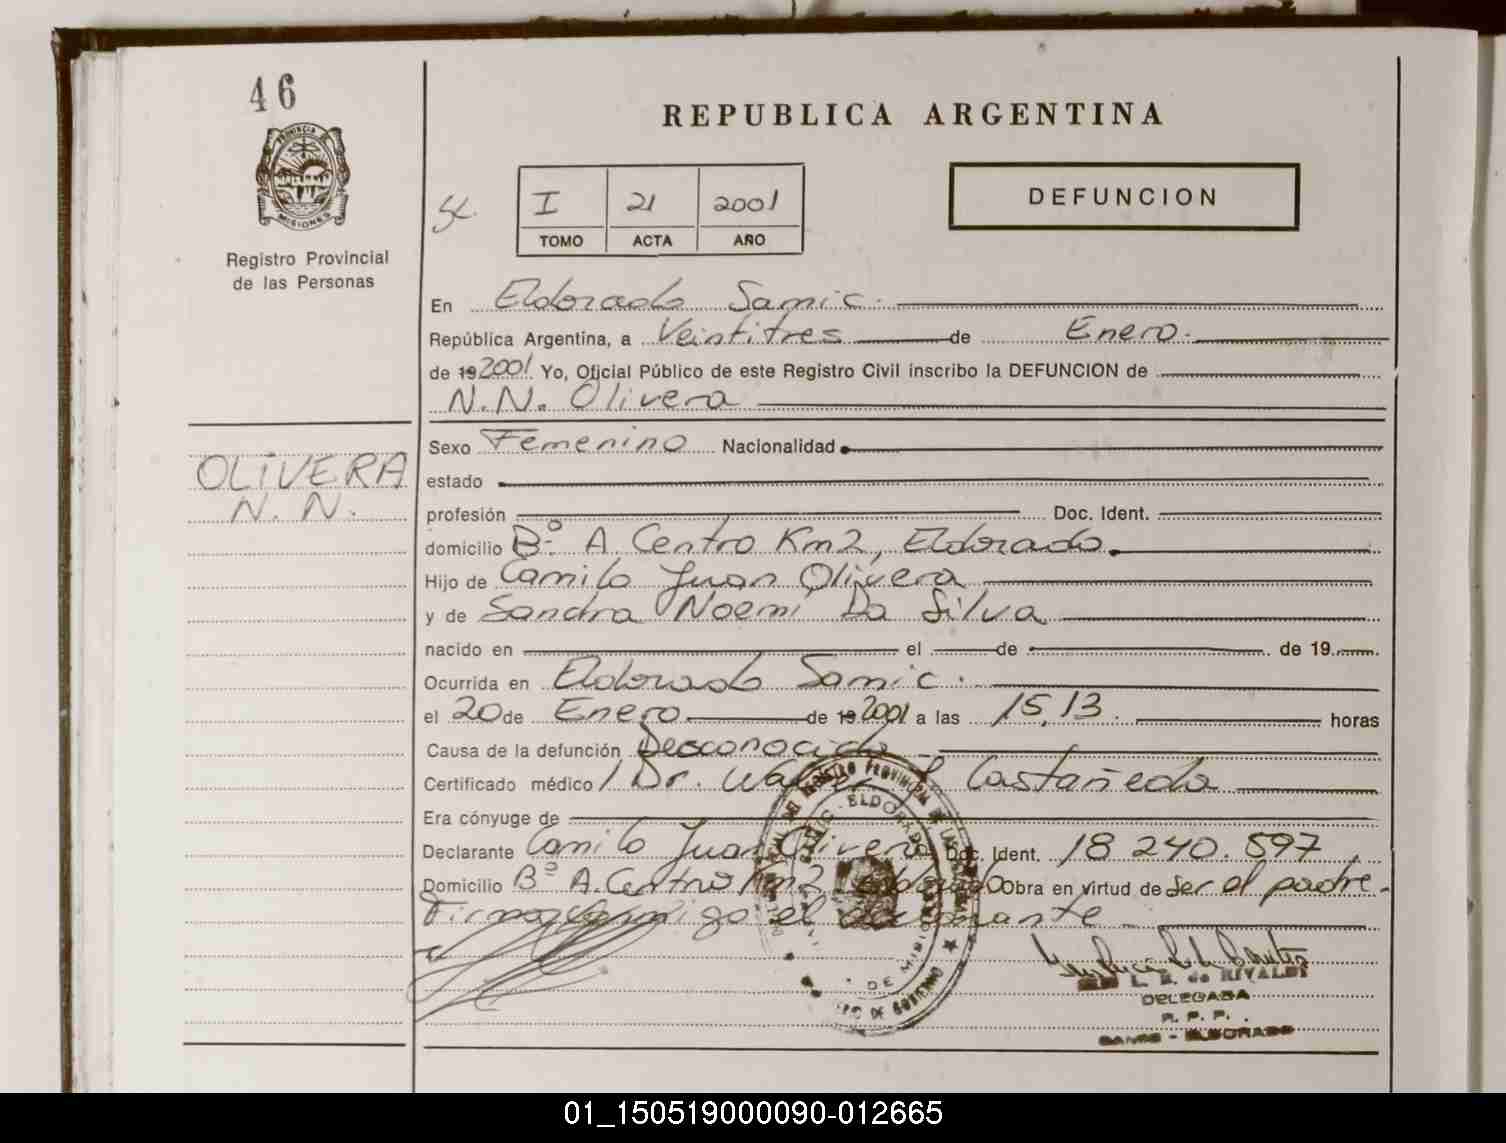 46
PROVINCIA
MISIONES
Registro Provincial
de las Personas
OLIVERA
N. N.
REPUBLICA ARGENTINA
I 21 2001
TOMO ACTA AÑO
DEFUNCION
En Eldorado Samic.
República Argentina, a Veintitres de Enero.
de 19 2001 Yo, Oficial Público de este Registro Civil inscribo la DEFUNCION de
N.N. Olivera
Sexo Femenino Nacionalidad
estado
profesión Doc. Ident.
domicilio Bº A. Centro Km2, Eldorado.
Hijo de Camilo Juan Olivera
y de Sandra Noemi Da Silva
nacido en el de de 19
Ocurrida en Eldorado Samic.
el 20 de Enero de 19 2001 a las 15,13 horas
Causa de la defunción Desconocida
Certificado médico Dr. Castañeda
Era cónyuge de
Declarante Camilo Juan Olivera Doc. Ident. 18 240.597
Domicilio Bº A. Centro Km2 Eldorado Obra en virtud de ser el padre.
el declarante
ELDORADO
DE MISIONES
DE GOBIERNO
L. E. de RIVALDI
DELEGADA
R. P. P.
SAMIC - ELDORADO
01_150519000090-012665